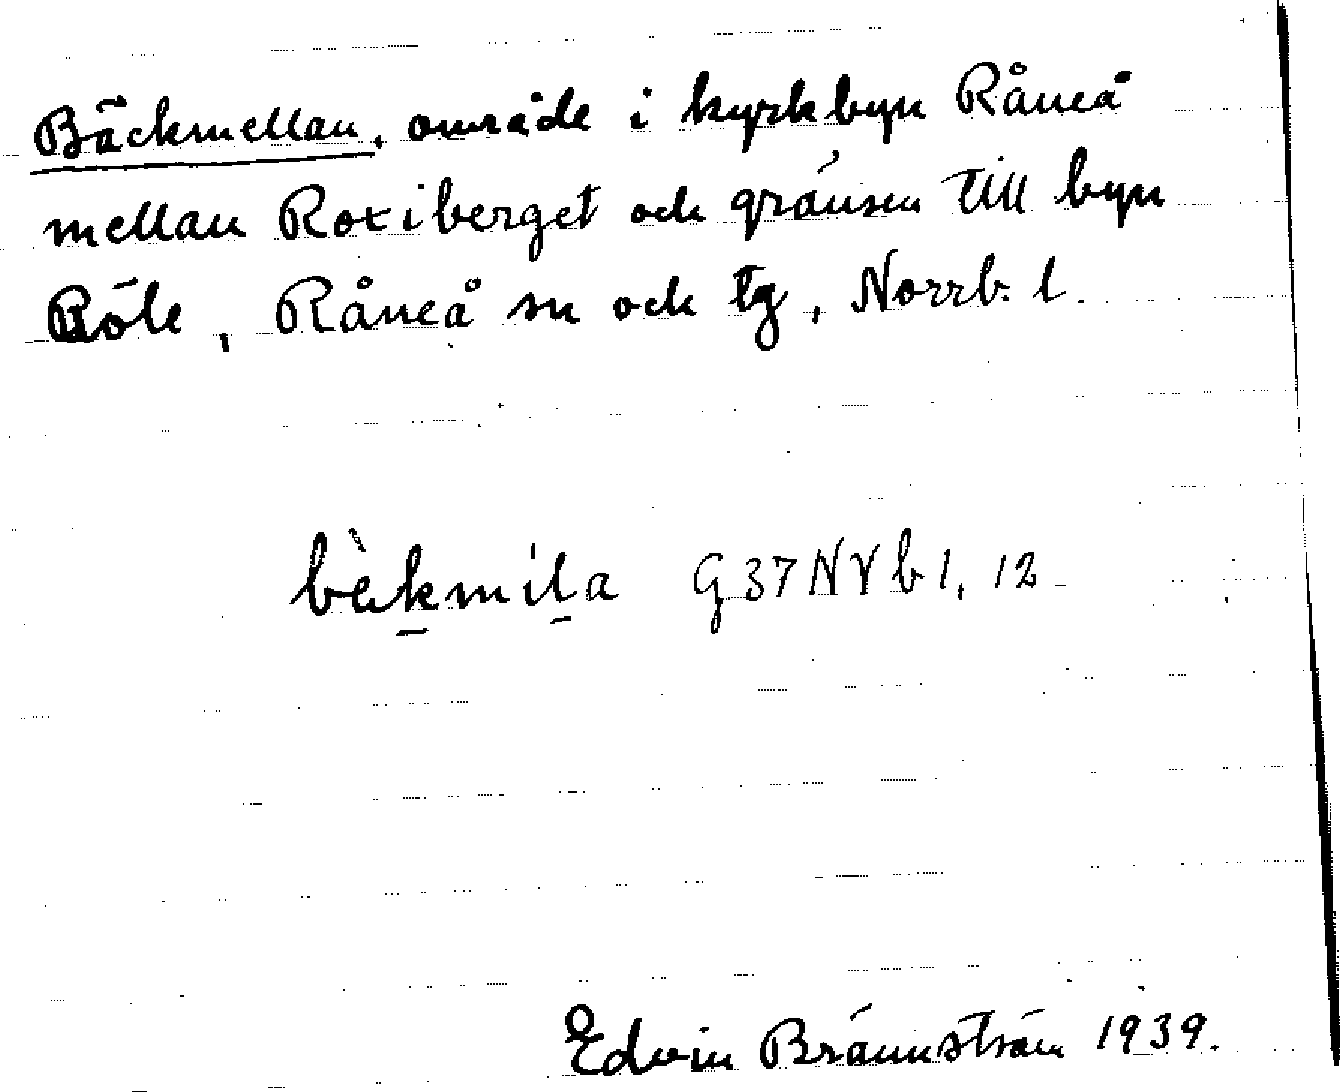 Bäckmellan, område i kyrkbyn Råneå
mellan Roxiberget och gränsen till byn
Böle, Råneå sn och tg, Norrb. l.
bèkmila G 37 N Y b 1, 12
Edvin Brännström 1939.